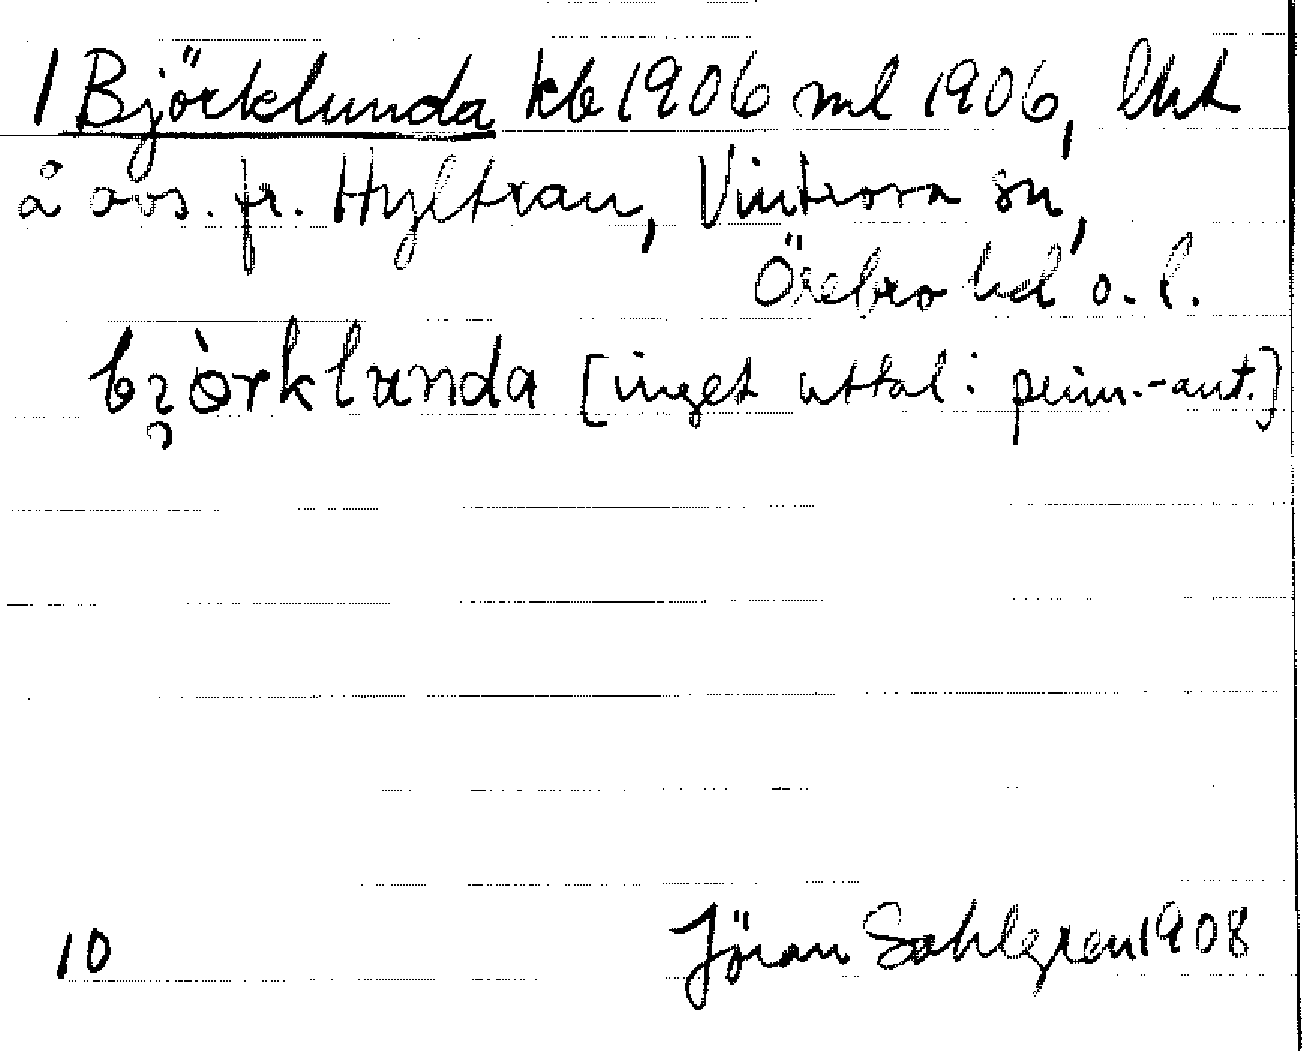 1 Björklunda kb 1906 ml 1906, lht
å avs. fr. Hyltran, Vintrosa sn,
Örebro hd o. l.
bjòrklunda [inget uttal i prim.-ant.]
10 Jöran Sahlgren 1908